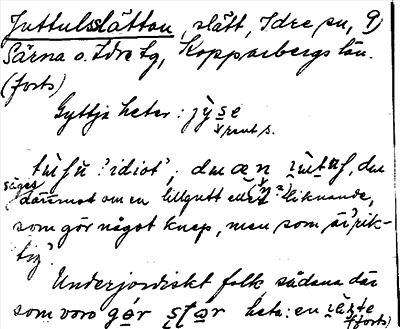 Juttulslätten, slätt, Idre sn, 9)
Särna o. Idre tg, Kopparbergs län.
(forts)
Gyttja heter:
rent s.
'idiot', du æn du
säges
däremot om en lillgutt el liknande,
som gör något knep, men som är 'rik-
tig'.
Underjordiskt folk sådana där
som voro heta: en
(forts)